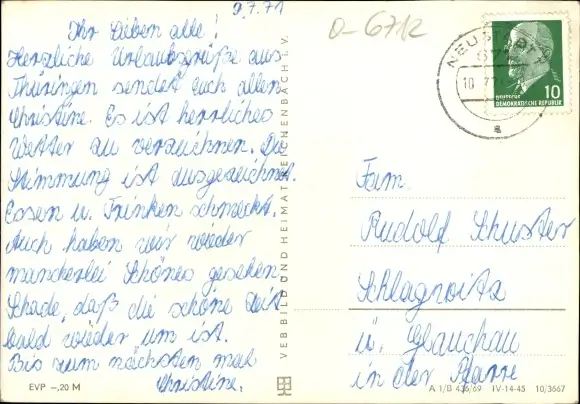 9.7.71
O-6712
Ihr Lieben alle!
Herzliche Urlaubsgrüße aus
Thüringen sendet Euch allen
Christine. Es ist herrliches
Wetter zu verzeichnen. Die
Stimmung ist ausgezeichnet.
Essen u. Trinken schmeckt.
Auch haben wir wieder
mancherlei Schönes gesehen.
Schade, daß die schöne Zeit
bald wieder um ist.
Bis zum nächsten mal
Christine.
EVP –,20 M
VEB BILD UND HEIMAT REICHENBACH I. V.
NEUSTADT
a
10
DEUTSCHE DEMOKRATISCHE REPUBLIK
Fam.
Rudolf Schuster
Schlagwitz
ü. Glauchau
in der Pfarre
A 1/B 436/69 IV-14-45 10/3667